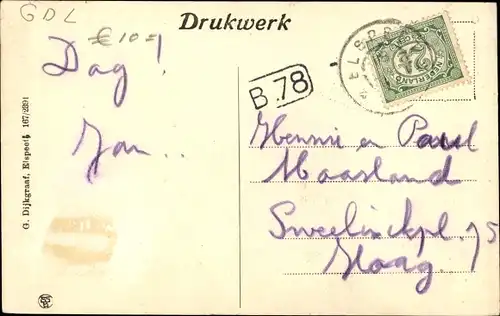 GDL
€ 10=
Drukwerk
NEDERLAND
2½
Dag!
B.78
Jan..
Hennie en Paul
Maasland
Sweelinckpl. 75
Haag.
G. Dijkgraaf, Elspeet, 167/2291